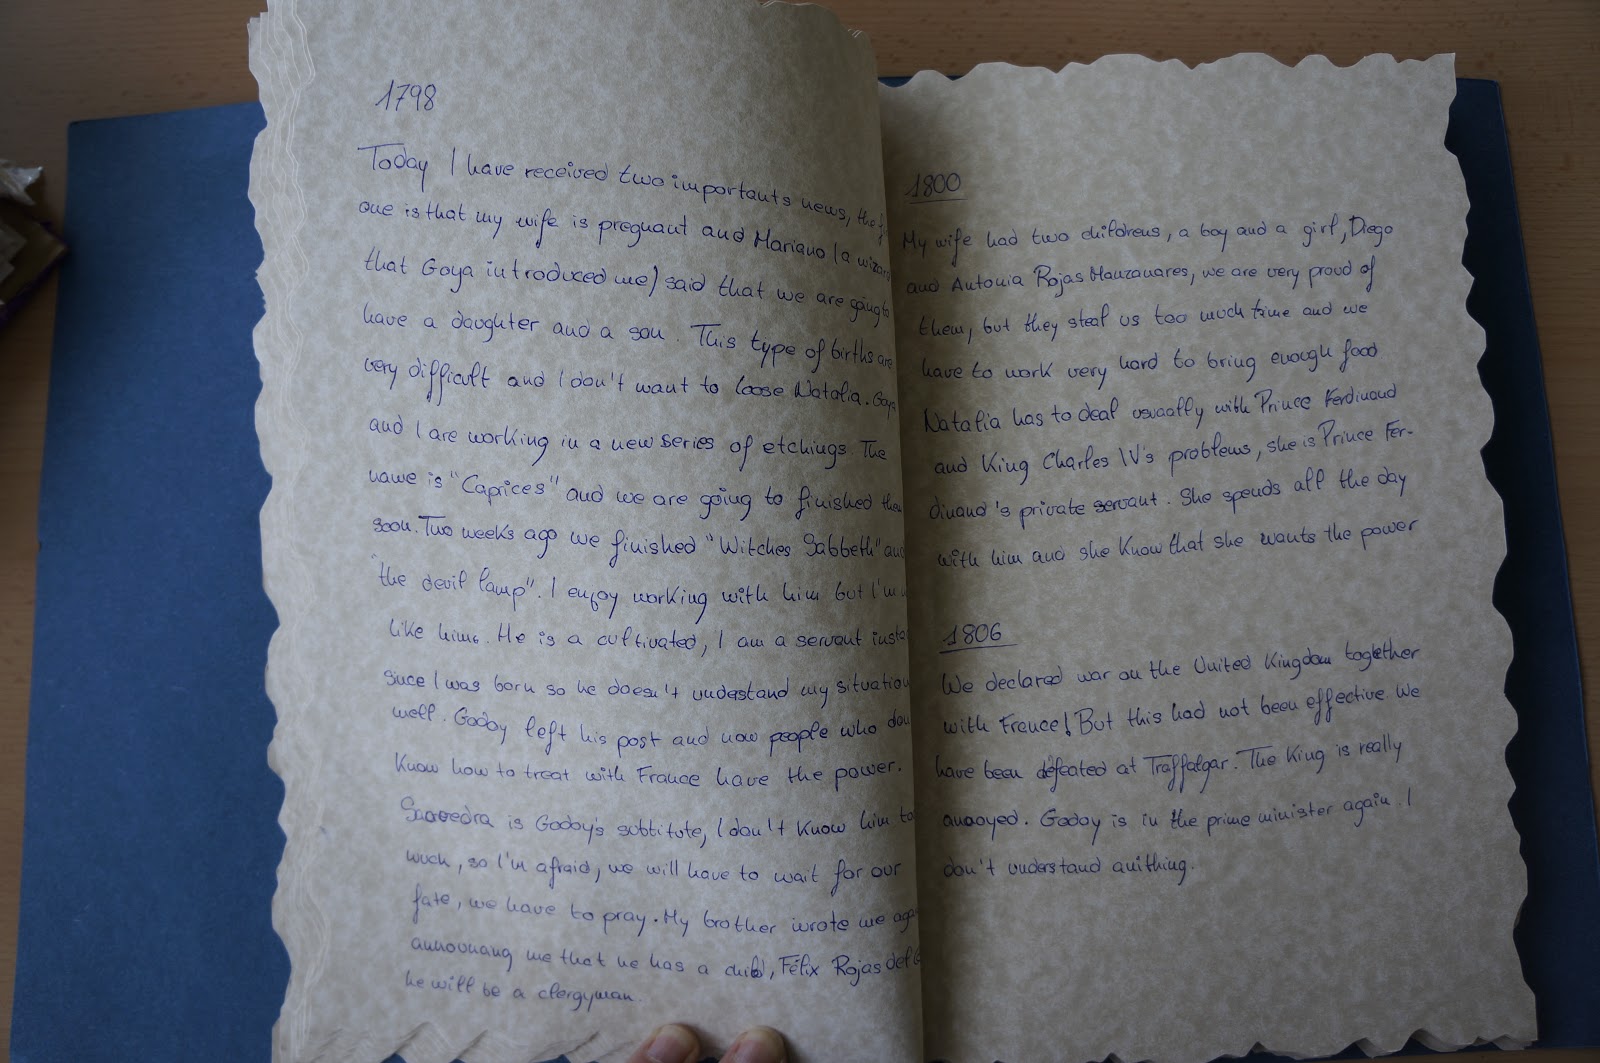 1798
Today I have received two importants news, the
one is that my wife is pregnant and Mariano (a wizard
that Goya introduced me) said that we are going to
have a daughter and a son. This type of births are
very difficult and I don't want to loose Natalia. Goya
and I are working in a new series of etchings. The
name is "Caprices" and we are going to finished them
soon. Two weeks ago we finished "Witches Sabbeth" and
"the devil lamp". I enjoy working with him but I'm
like him. He is a cultivated, I am a servant
since I was born so he doesn't undestand my situation
well. Godoy left his post and now people who don
know how to treat with France have the power.
Saavedra is Godoy's subtitute, I don't know him to
much, so I'm afraid, we will have to wait for our
fate, we have to pray. My brother wrote me aga
me that he has a child, Félix Rojas del
he will be a clergyman.
1800
My wife had two childrens, a boy and a girl, Diego
and Antonia Rojas Manzanares, we are very proud of
them, but they steal us too much time and we
have to work very hard to bring enough food
Natalia has to deal usually with Prince Ferdinand
and King Charles IV's problems, she is Prince Fer-
dinand's private servant. She spends all the day
with him and she know that she wants the power
1806
We declared war on the United Kingdom together
with France! But this had not been effective. We
have been defeated at Traffalgar. The King is really
annoyed. Godoy is in the prime minister again. I
don't understand anithing.